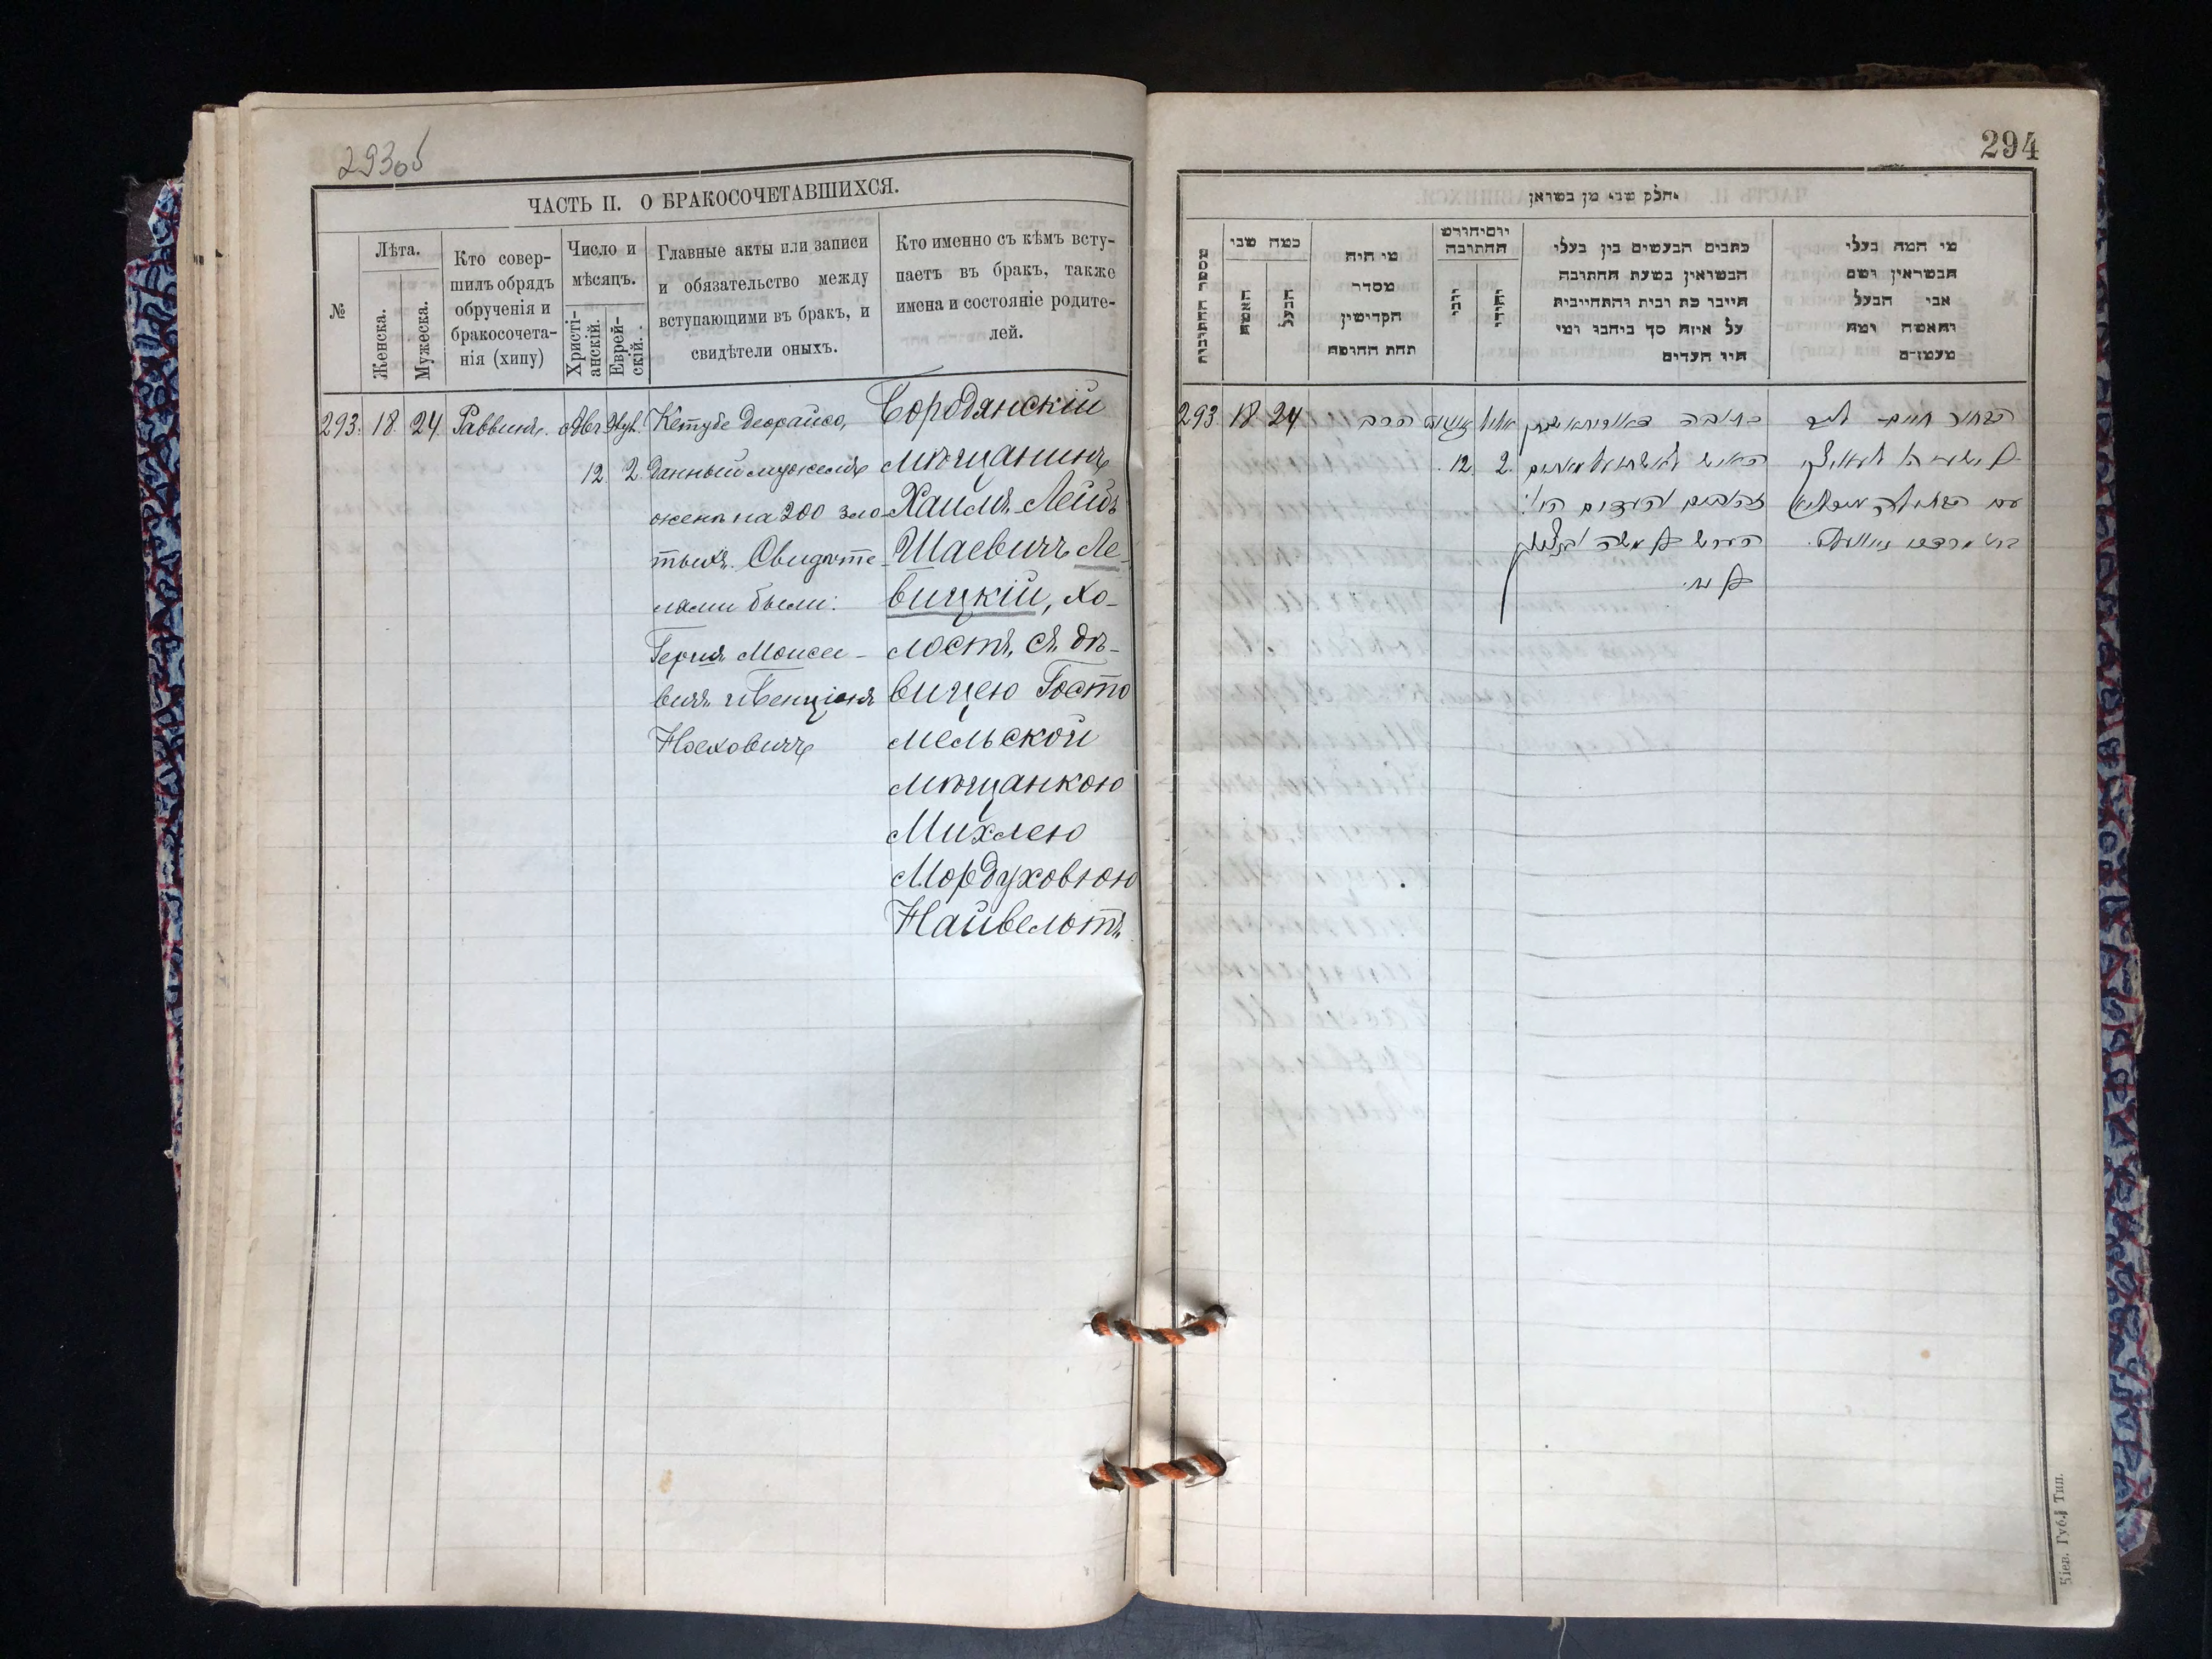 293об
ЧАСТЬ II. О БРАКОСОЧЕТАВШИХСЯ.
№
Лѣта.
Женска.
Мужеска.
Кто совер-
шилъ обрядъ
обрученія и
бракосочета-
нія (хипу)
Число и
мѣсяцъ.
Христі-
анскій.
Еврей-
скій.
Главные акты или записи
и обязательство между
вступающими въ бракъ, и
свидѣтели оныхъ.
Кто именно съ кѣмъ всту-
паетъ въ бракъ, также
имена и состояніе родите-
лей.
293. 18. 24 Раввинъ. Авг.
12. 2.
Кетубе деорайсо,
данный мужемъ
женѣ на 200 зло-
тыхъ. Свидѣте-
лями были:
Гершъ Моисее-
вичъ и Бенціонъ
Ноеховичъ
Бородянскій
мѣщанинъ
Хаимъ-Лейбъ
Шаевичъ Ле-
вицкій, хо-
лостъ, съ дѣ-
вицею Госто
мельской
мѣщанкою
Михлею
Мордуховою
Найвельтъ
294
חלק שני מן בשואין
מספר החתונות
כמה שני
האשה
הבעל
מי היה
מסדר
הקדישין
תחת החופה
יום וחודש
החתונה
נוצרי
יהודי
כתבים הנעשים בין בעלי
הנשואין בשעת החתונה
חייבו כת ובית והתחייבית
על איזה סך ביהבו ומי
היו העדים
מי המה בעלי
הנשואין ושם
אבי הבעל
והאשה ומה
מעמדם
293 18 24 הרב
12. 2.
כתובה דאורייתא
האיש לאשתו מאתים
זהובים והעדים היו:
הערש משה
הבחור חיים ליב
עם הבתולה
בת מרדכי
Кіев. Губ. Тип.